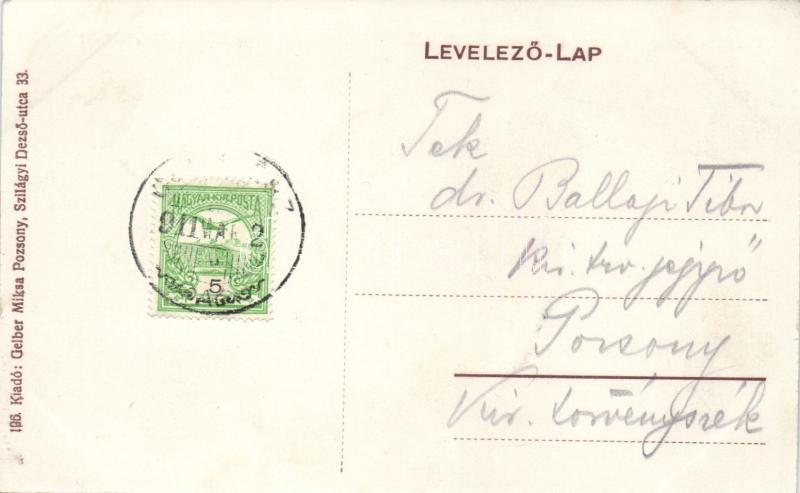 LEVELEZŐ-LAP
196. Kiadó: Gelber Miksa Pozsony, Szilágyi Dezső-utca 33.
MAGYAR KIR. POSTA
911 MAR 2
5
Tek
dr. Ballagi Tibor
kir. trv. jegyző
Pozsony
Kir. törvényszék